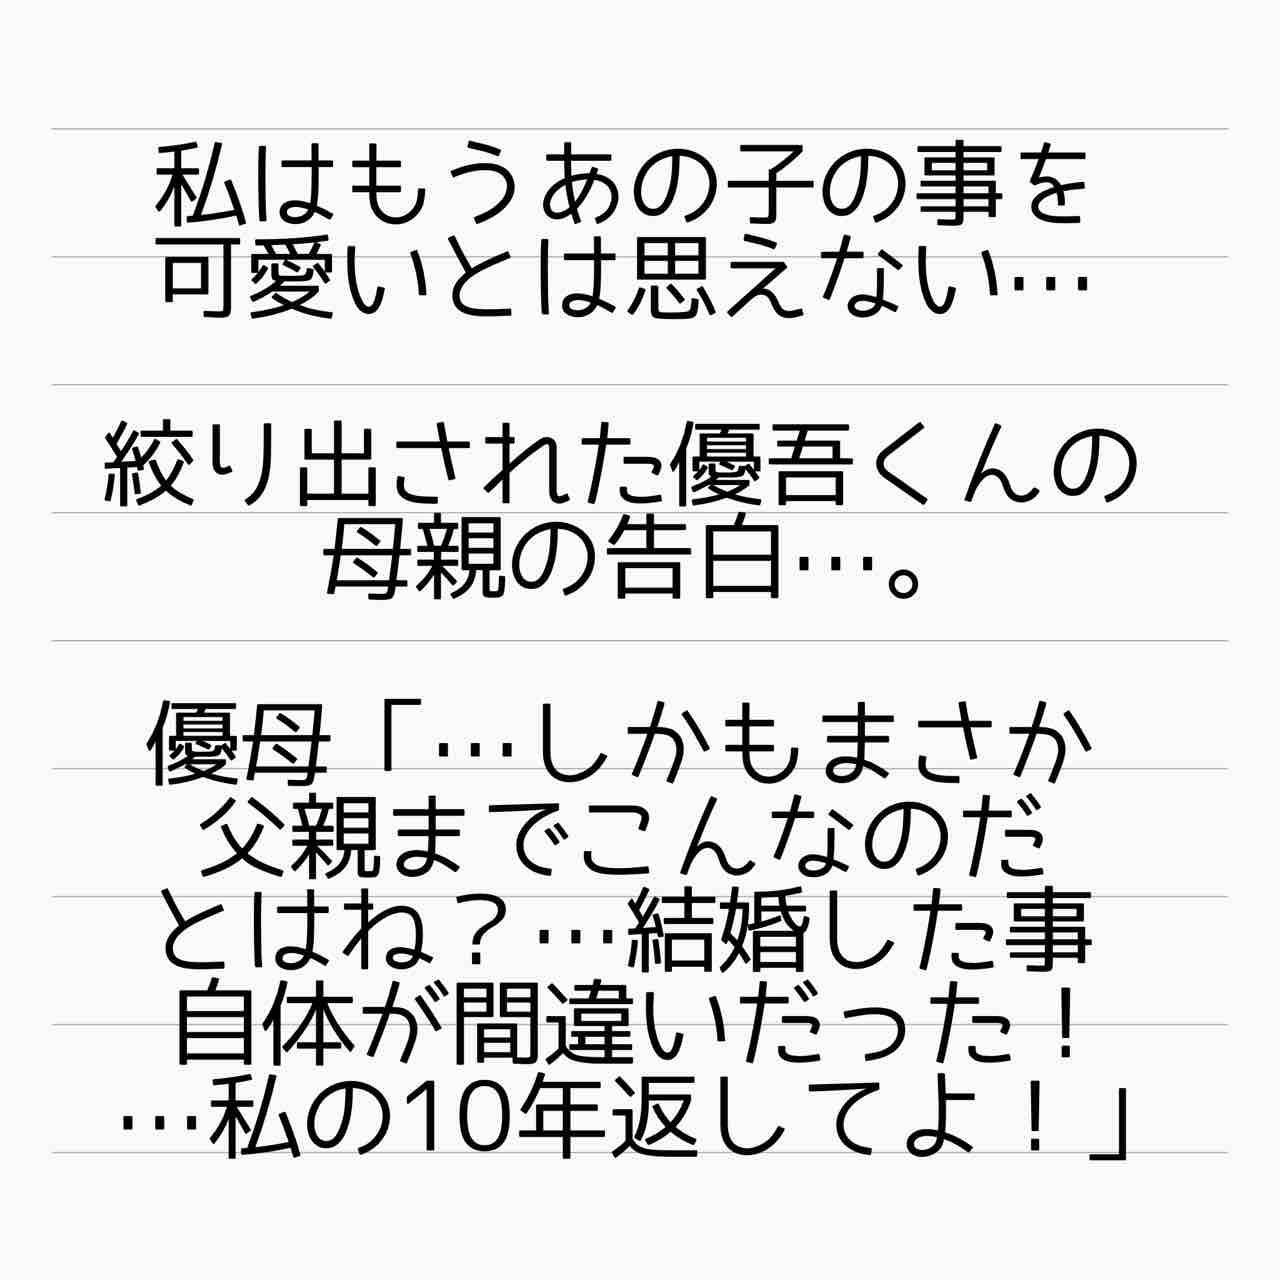 私はもうあの子の事を
可愛いとは思えない…
絞り出された優吾くんの
母親の告白…。
優母「…しかもまさか
父親までこんなのだ
とはね？…結婚した事
自体が間違いだった！
…私の10年返してよ！」